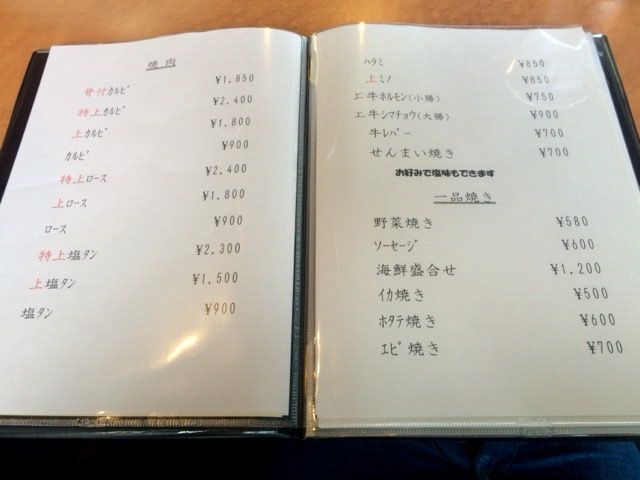 焼肉
骨付カルビ ¥1,850
特上カルビ ¥2,400
上カルビ ¥1,800
カルビ ¥900
特上ロース ¥2,400
上ロース ¥1,800
ロース ¥900
特上塩タン ¥2,300
上塩タン ¥1,500
塩タン ¥900
ハラミ ¥850
上ミノ ¥850
エ牛ホルモン(小腸) ¥750
エ牛シマチョウ(大腸) ¥900
牛レバー ¥700
せんまい焼き ¥700
お好みで塩味もできます
一品焼き
野菜焼き ¥580
ソーセージ ¥600
海鮮盛合せ ¥1,200
イカ焼き ¥500
ホタテ焼き ¥600
エビ焼き ¥700